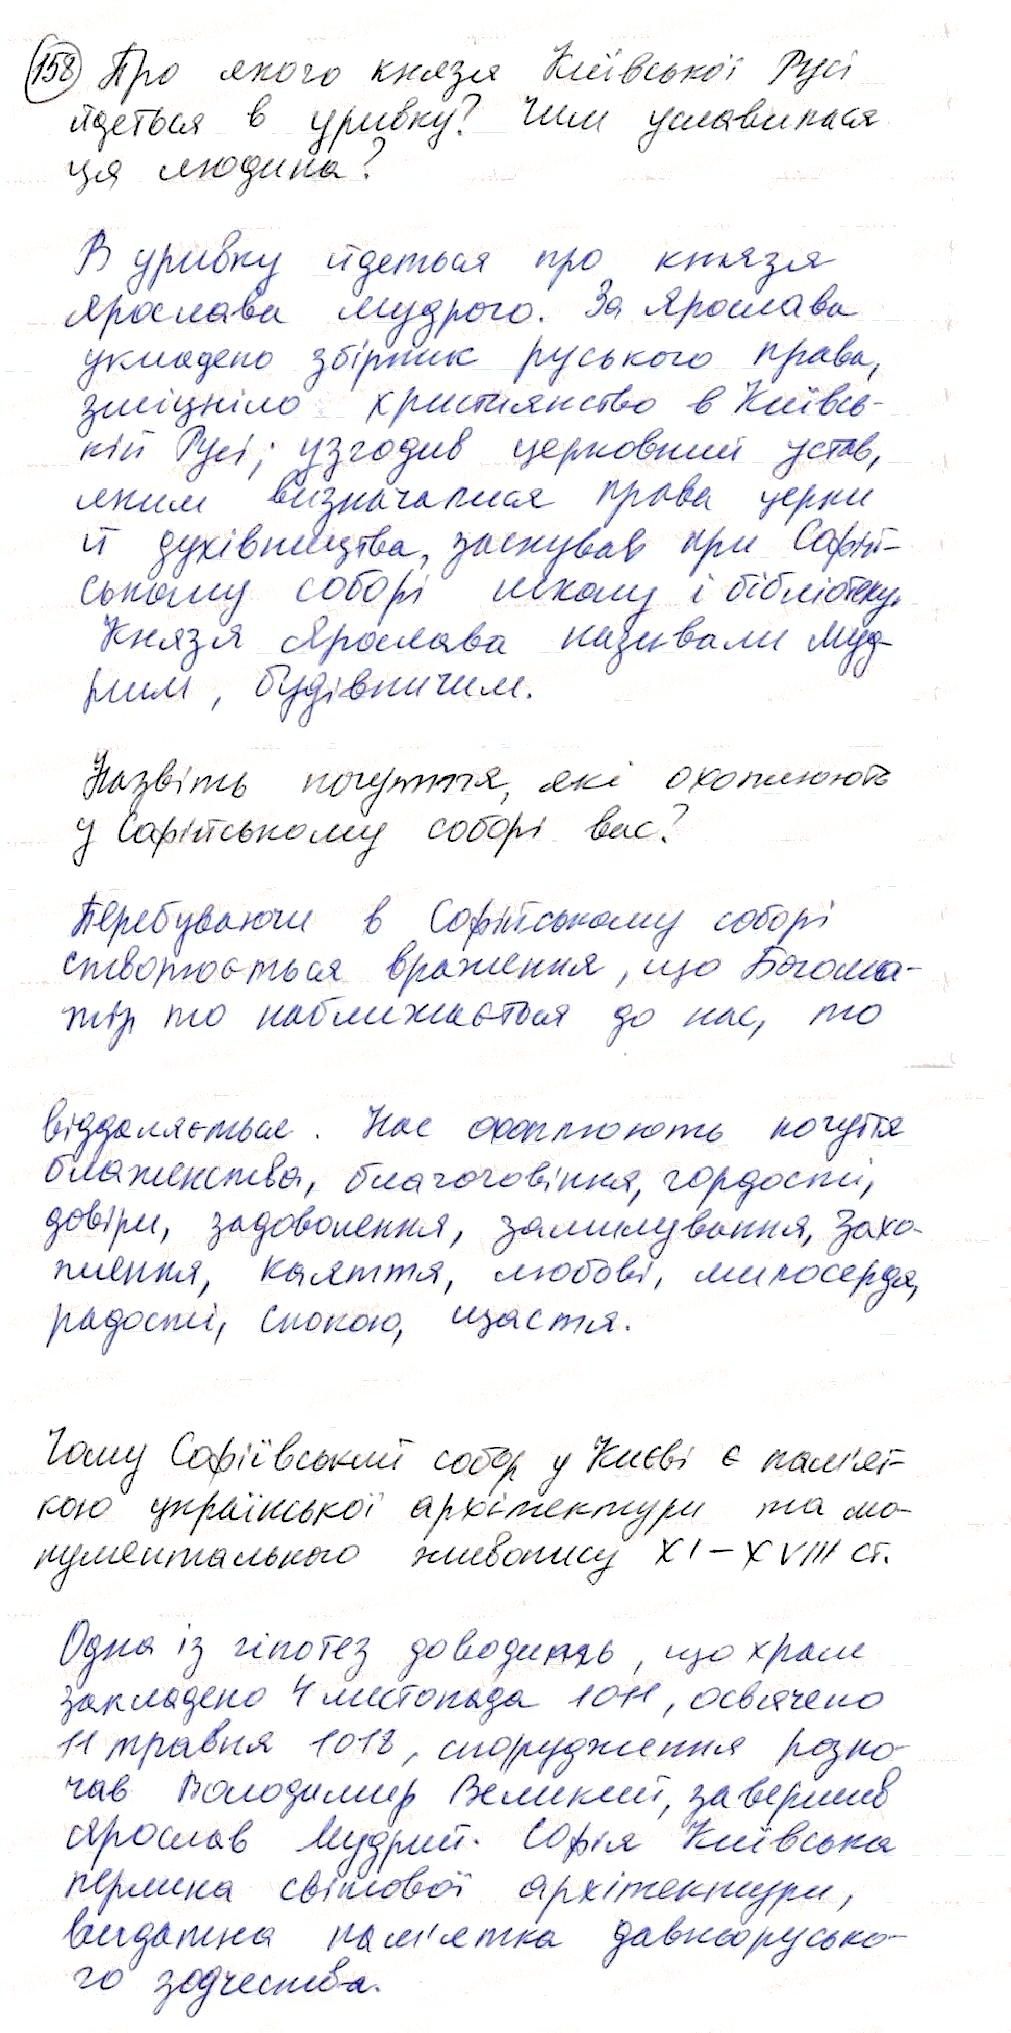 158 Про якого князя Київської Русі
йдеться в уривку? Чим уславилася
ця людина?
В уривку йдеться про князя
Ярослава Мудрого. За Ярослава
укладено збірник руського права,
зміцніло християнство в Київсь-
кій Русі; узгодив церковний устав,
яким визначалися права церкви
й духівництва, заснував при Софій-
ському соборі школу і бібліотеку.
Князя Ярослава називали Муд-
рим, будівничим.
Назвіть почуття, які охоплюють
у Софійському соборі вас?
Перебуваючи в Софійському соборі
створюється враження, що Богома-
тір то наближається до нас, то
віддаляється. Нас охоплюють почуття
блаженства, благоговіння, гордості,
довіри, задоволення, замилування, захо-
плення, каяття, любові, милосердя,
радості, спокою, щастя.
Чому Софіївський собор у Києві є пам'ят-
кою української архітектури та мо-
нументального живопису XI-XVIII ст.
Одна із гіпотез доводить, що храм
закладено 4 листопада 1011, освячено
11 травня 1018, спорудження розпо-
чав Володимир Великий, завершив
Ярослав Мудрий. Софія Київська
перлина світової архітектури,
видатна пам'ятка давньорусько-
го зодчества.